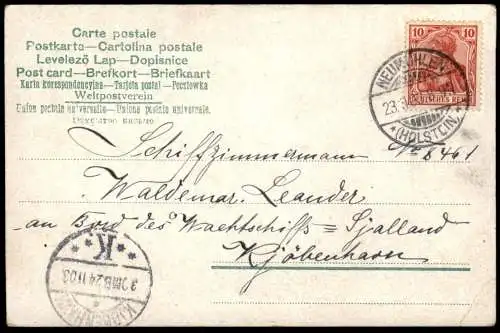 Carte postale
Postkarte—Cartolina postale
Levelező Lap—Dopisnice
Post card—Brefkort—Briefkaart
Karta korespondencyjna—Tarjeta postal—Pocztówka
Weltpostverein
Union postale universelle—Unione postale universale.
10 10
NEUMÜHLEN
23.
*(HOLSTEIN)
Schiffzimmermann No 8461
Waldemar Leander
an Bord des Wachtschiffs Sjalland
Kjöbenhavn
*K*
3 OMB 24 11 03
KJØBENHAVN